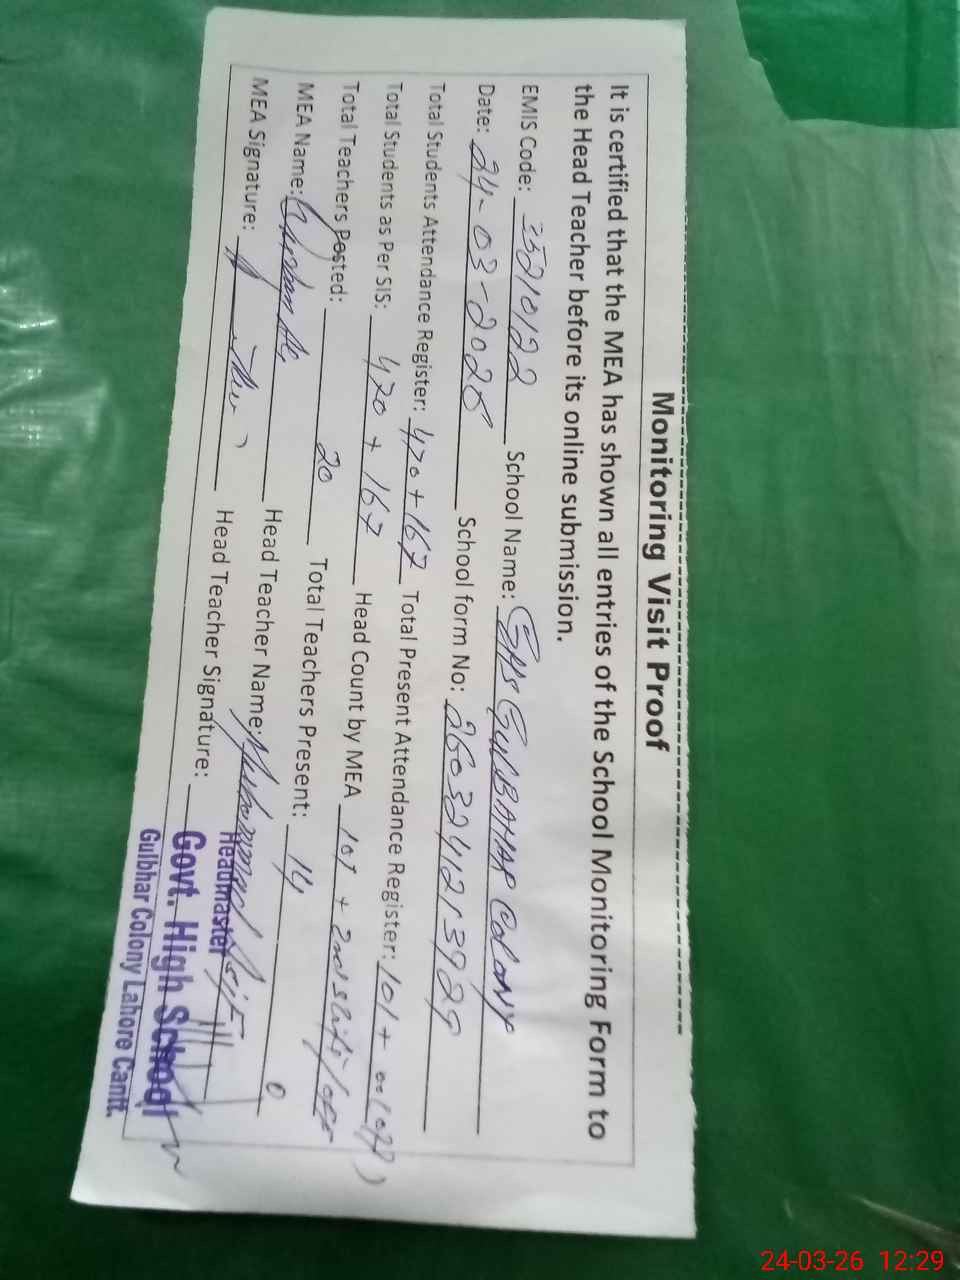 Monitoring Visit Proof
It is certified that the MEA has shown all entries of the School Monitoring Form to
the Head Teacher before its online submission.
EMIS Code: 35210122 School Name: GHS GULBAHAR COLONY
Date: 24-03-2026 School form No:
Total Students Attendance Register: 470 + 167 Total Present Attendance Register: 101 +
Total Students as Per SIS: 470 + 167 Head Count by MEA 101 + 2nd shift off
Total Teachers Posted: 20 Total Teachers Present: 14
MEA Name: Head Teacher Name: Muhammad
MEA Signature: Head Teacher Signature:
Headmaster
Govt. High School
Gulbhar Colony Lahore Cantt.
24-03-26 12:29